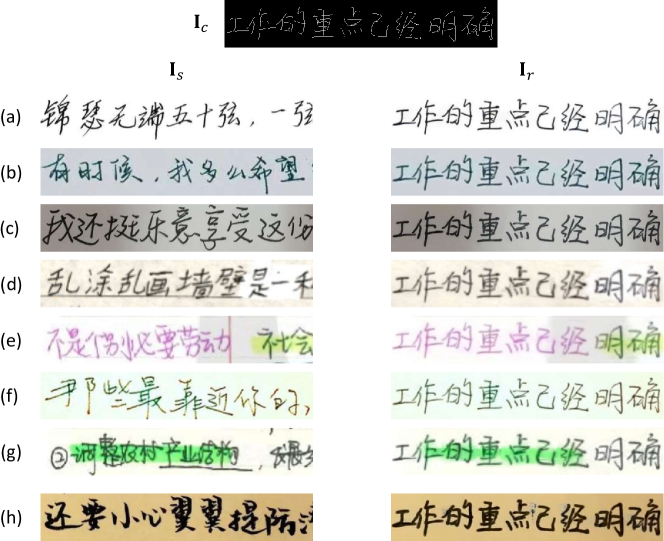 I_c 工作的重点已经明确
I_s I_r
(a) 锦瑟无端五十弦，一弦 工作的重点已经明确
(b) 有时候，我多么希望 工作的重点已经明确
(c) 我还挺乐意享受这份 工作的重点已经明确
(d) 乱涂乱画墙壁是一 工作的重点已经明确
(e) 不是例必要劳动 社会 工作的重点已经明确
(f) 那些最靠近你的, 工作的重点已经明确
(g) ②调整农村产业结构, 工作的重点已经明确
(h) 还要小心翼翼提防 工作的重点已经明确